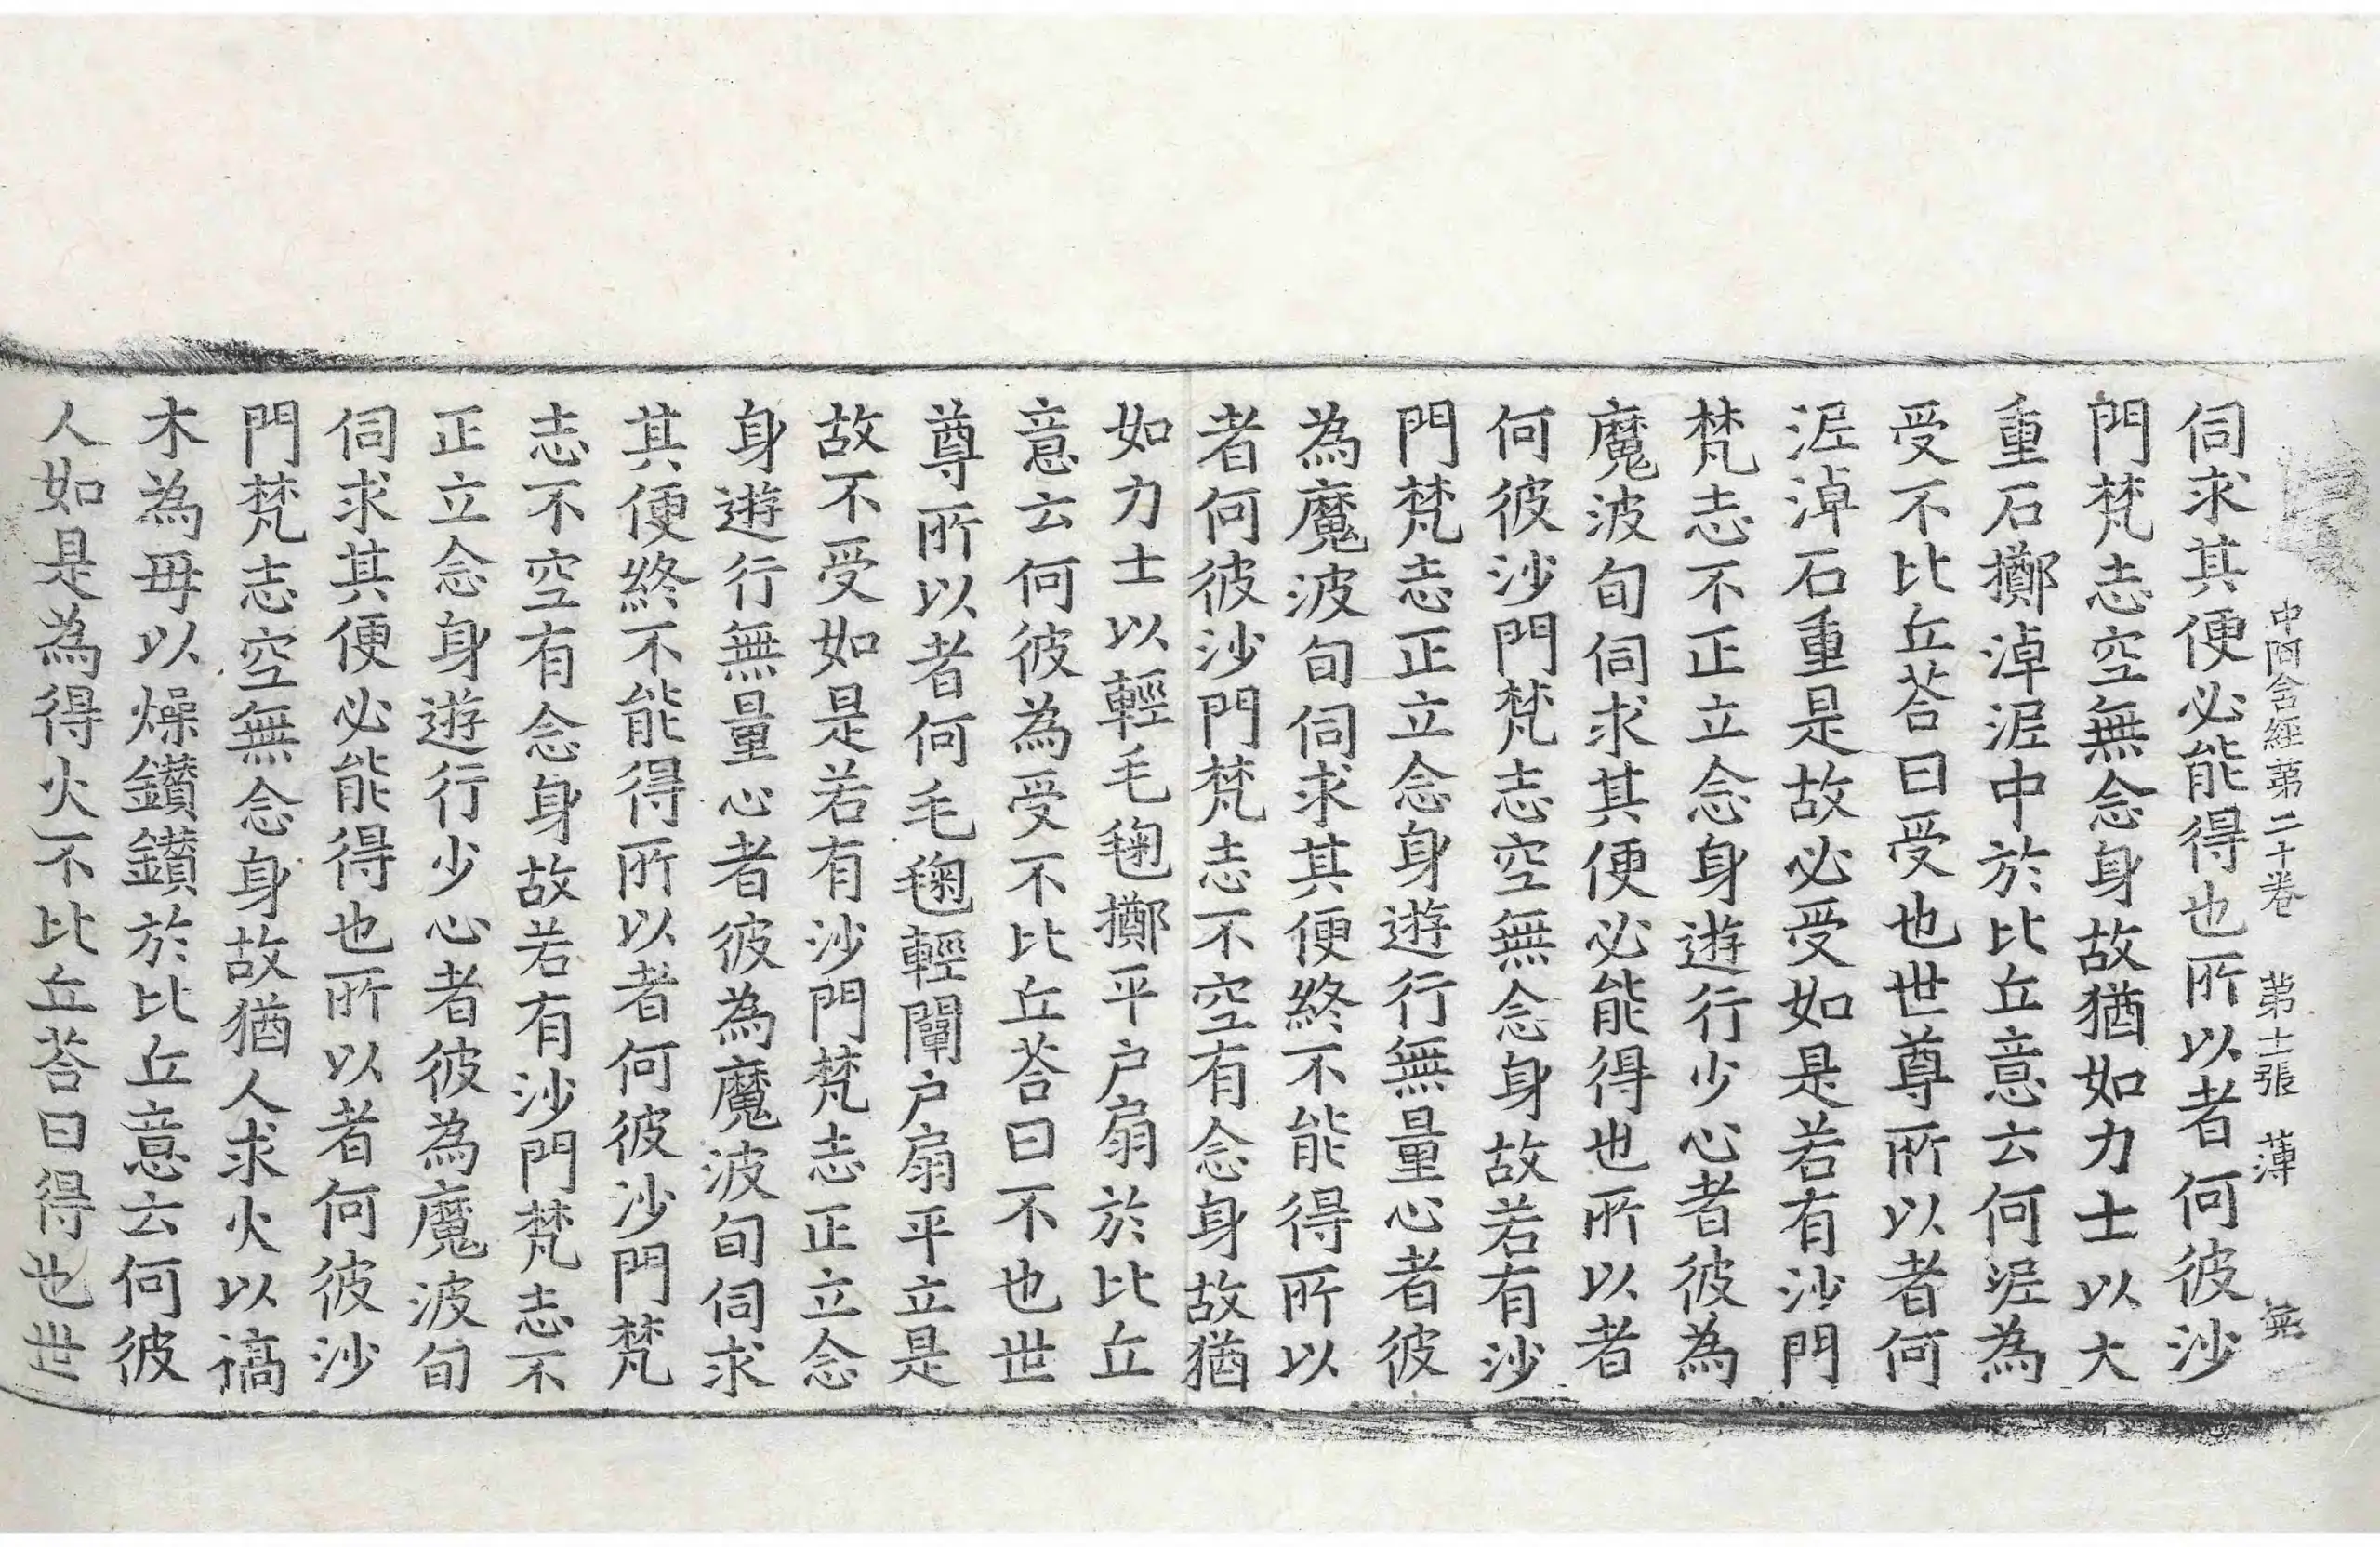 中阿含經第二十卷 第十一張 薄
伺求其便必能得也所以者何彼沙
門梵志空無念身故猶如力士以大
重石擲淖渥中於比丘意云何渥為
受不比丘荅曰受也世尊所以者何
渥淖石重是故必受如是若有沙門
梵志不正立念身遊行少心者彼為
魔波旬伺求其便必能得也所以者
何彼沙門梵志空無念身故若有沙
門梵志正立念身遊行無量心者彼
為魔波旬伺求其便終不能得所以
者何彼沙門梵志不空有念身故猶
如力士以輕毛毱擲平户扇於比丘
意云何彼為受不比丘荅曰不也世
尊所以者何毛毱輕闡户扇平立是
故不受如是若有沙門梵志正立念
身遊行無量心者彼為魔波旬伺求
其便終不能得所以者何彼沙門梵
志不空有念身故若有沙門梵志不
正立念身遊行少心者彼為魔波旬
伺求其便必能得也所以者何彼沙
門梵志空無念身故猶人求火以槁
木為毋以燥鑽鑽於比丘意云何彼
人如是為得火不比丘荅曰得也世